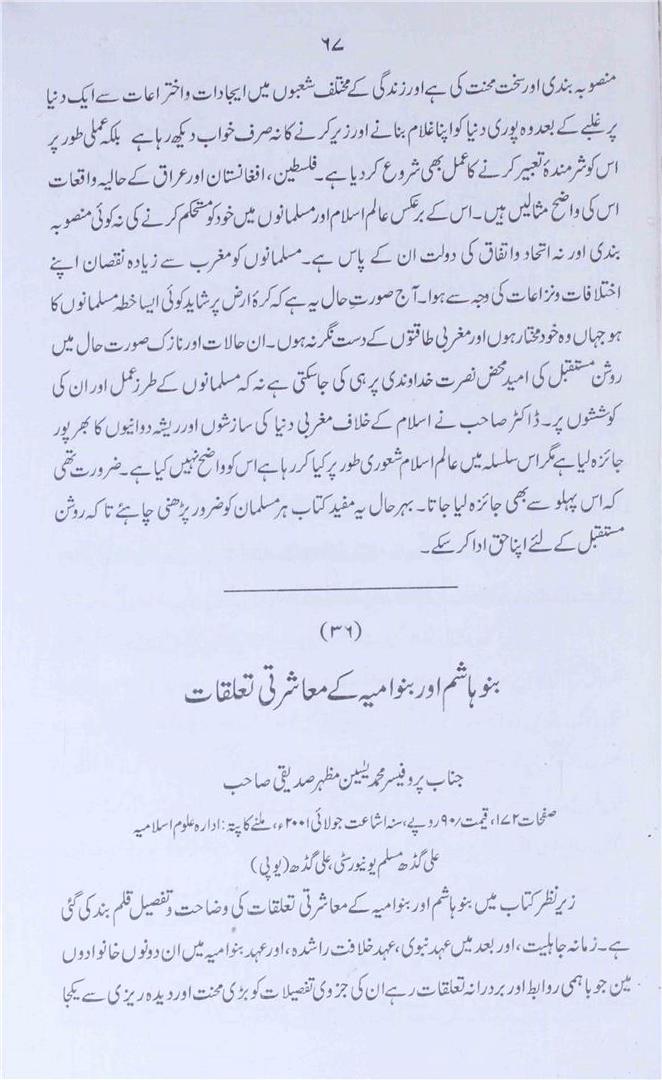 ۶۷
منصوبہ بندی اور سخت محنت کی ہے اور زندگی کے مختلف شعبوں میں ایجادات و اختراعات سے ایک دنیا
پر غلبے کے بعد وہ پوری دنیا کو اپنا غلام بنانے اور زیر کرنے کا نہ صرف خواب دیکھ رہا ہے بلکہ عملی طور پر
اس کو شرمندۂ تعبیر کرنے کا عمل بھی شروع کر دیا ہے۔ فلسطین، افغانستان اور عراق کے حالیہ واقعات
اس کی واضح مثالیں ہیں۔ اس کے برعکس عالم اسلام اور مسلمانوں میں خود کو مستحکم کرنے کی نہ کوئی منصوبہ
بندی اور نہ اتحاد و اتفاق کی دولت ان کے پاس ہے۔ مسلمانوں کو مغرب سے زیادہ نقصان اپنے
اختلافات و نزاعات کی وجہ سے ہوا۔ آج صورتِ حال یہ ہے کہ کرۂ ارض پر شاید کوئی ایسا خطہ مسلمانوں کا
ہو جہاں وہ خود مختار ہوں اور مغربی طاقتوں کے دست نگر نہ ہوں۔ ان حالات اور نازک صورت حال میں
روشن مستقبل کی امید محض نصرت خداوندی پر ہی کی جا سکتی ہے نہ کہ مسلمانوں کے طرز عمل اور ان کی
کوششوں پر۔ ڈاکٹر صاحب نے اسلام کے خلاف مغربی دنیا کی سازشوں اور ریشہ دوانیوں کا بھرپور
جائزہ لیا ہے مگر اس سلسلہ میں عالم اسلام شعوری طور پر کیا کر رہا ہے اس کو واضح نہیں کیا ہے۔ ضرورت تھی
کہ اس پہلو سے بھی جائزہ لیا جاتا۔ بہر حال یہ مفید کتاب ہر مسلمان کو ضرور پڑھنی چاہئے تاکہ روشن
مستقبل کے لئے اپنا حق ادا کر سکے۔
(۳۶)
بنو ہاشم اور بنو امیہ کے معاشرتی تعلقات
جناب پروفیسر محمد یٰسین مظہر صدیقی صاحب
صفحات ۱۷۲، قیمت /۹۰ روپے، سنہ اشاعت جولائی ۲۰۰۱ء، ملنے کا پتہ: ادارہ علوم اسلامیہ
علی گڈھ مسلم یونیورسٹی، علی گڈھ (یوپی)
زیر نظر کتاب میں بنو ہاشم اور بنو امیہ کے معاشرتی تعلقات کی وضاحت و تفصیل قلم بند کی گئی
ہے۔ زمانہ جاہلیت، اور بعد میں عہد نبوی، عہد خلافت راشدہ، اور عہد بنو امیہ میں ان دونوں خانوادوں
مین جو باہمی روابط اور بردرانہ تعلقات رہے ان کی جزوی تفصیلات کو بڑی محنت اور دیدہ ریزی سے یکجا